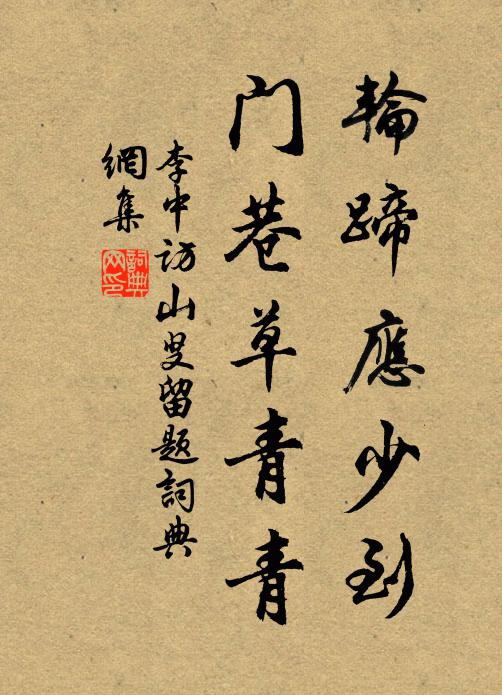 輪蹄應少到
门巷草青青
李中访山叟留題詞典
網集
詞典
网印